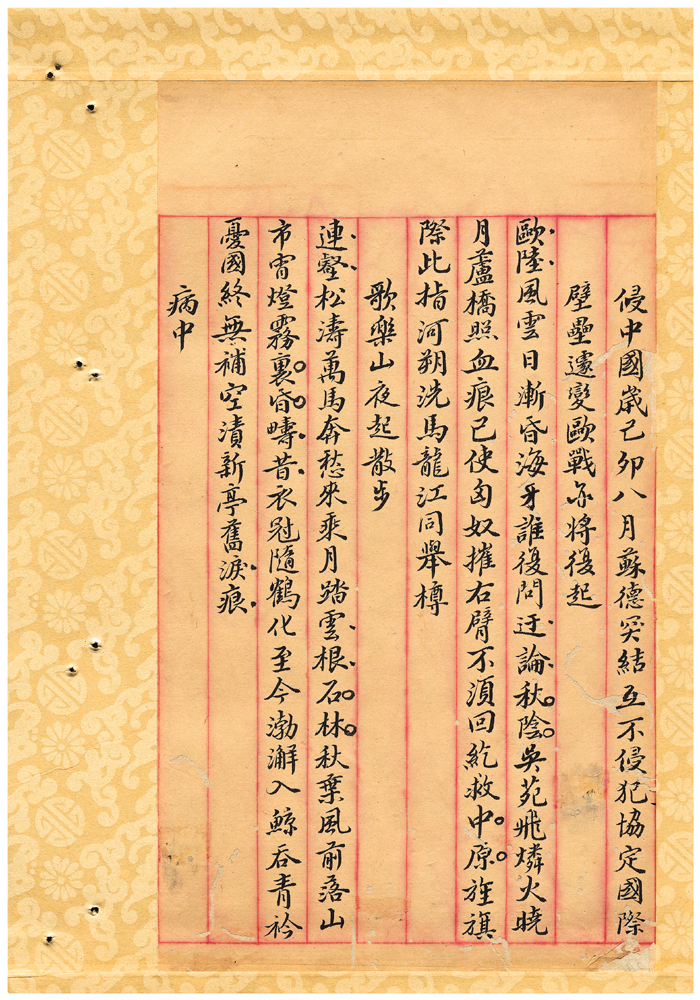 侵中國歲己卯八月蘇德突結互不侵犯協定國際
壁壘遽變歐戰亦將復起
歐陸風雲日漸昏海牙誰復問迂論秋陰吳苑飛燐火曉
月蘆橋照血痕已使匈奴摧右臂不須回紇救中原旌旗
際此指河朔洗馬龍江同舉樽
歌樂山夜起散步
連壑松濤萬馬奔愁來乘月踏雲根石林秋葉風前落山
市宵燈霧裏昏疇昔衣冠隨鶴化至今渤澥入鯨吞青衿
憂國終無補空漬新亭舊淚痕
病中